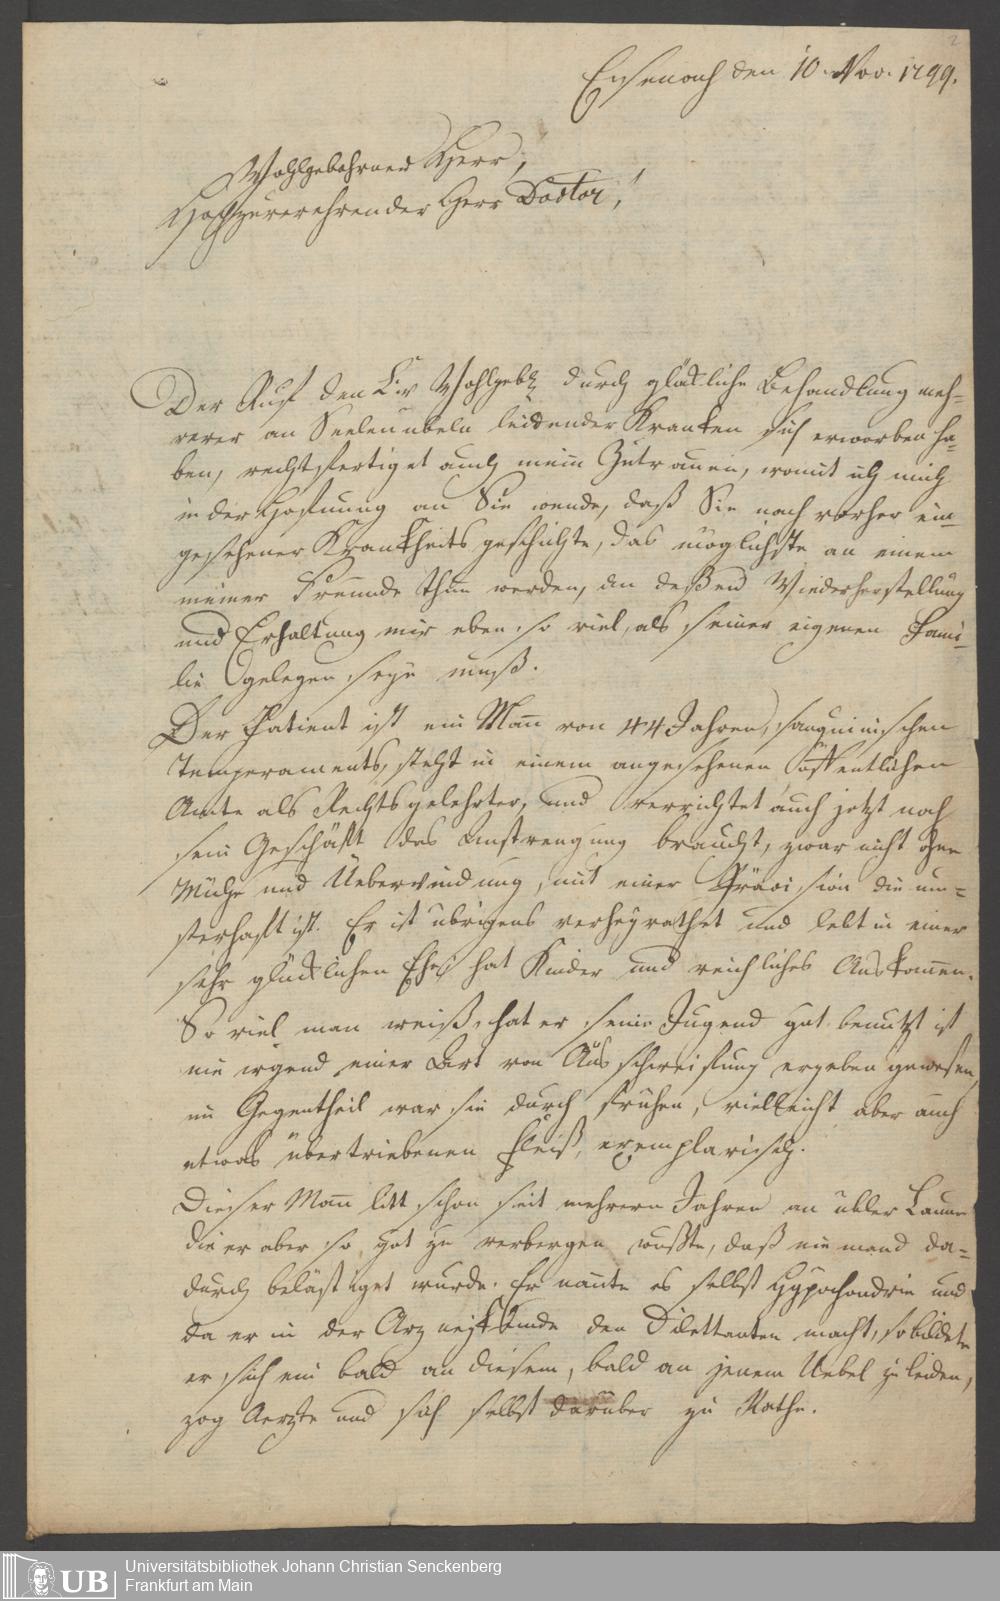 2
Eisenach den 10. Nov. 1799.
Wohlgebohrner Herr,
Hochzuverehrender Herr Doctor,!
Der Ruf den Ew Wohlgeb. durch glückliche Behandlung meh-
rerer an Seelenübeln leidender Kranken sich erworben ha-
ben, rechtfertiget auch mein Zutrauen, womit ich mich
in der Hofnung an Sie wende, daß Sie nach vorher ein-
gesehener Krankheitsgeschichte, das möglichste an einem
meiner Freunde thun werden, an deßen Wiederherstellung
und Erhaltung mir eben so viel, als seiner eigenen Fami-
lie gelegen seyn muß.
Der Patient ist ein Mañ von 44 Jahren, sanguinischen
Temperaments, steht in einem angesehenen öffentlichen
Amte als Rechtsgelehrter, und verrichtet auch jetzt noch
sein Geschäft das Anstrengung braucht, zwar nicht ohne
Mühe und Ueberwindung, mit einer Präcision die mu-
sterhaft ist. Er ist übrigens verheyrathet und lebt in einer
sehr glücklichen Ehe, hat Kinder und reichliches Auskom̄en.
So viel man weiß, hat er seine Jugend gut benutzt ist
nie irgend einer Art von Ausschweifung ergeben gewesen,
im Gegentheil war sie durch frühen, vielleicht aber auch
etwas übertriebenen Fleiß, exemplarisch.
Dieser Mañ litt schon seit mehrern Jahren an übler Laune
die er aber so gut zu verbergen wußte, daß niemand da-
durch belästiget wurde. Er nañte es selbst Hypochondrie und
da er in der Arzneykunde den Dilettanten macht, so bildete
er sich ein bald an diesem, bald an jenem Uebel zu leiden,
zog Aerzte und sich selbst darüber zu Rathe.
UB
Universitätsbibliothek Johann Christian Senckenberg
Frankfurt am Main